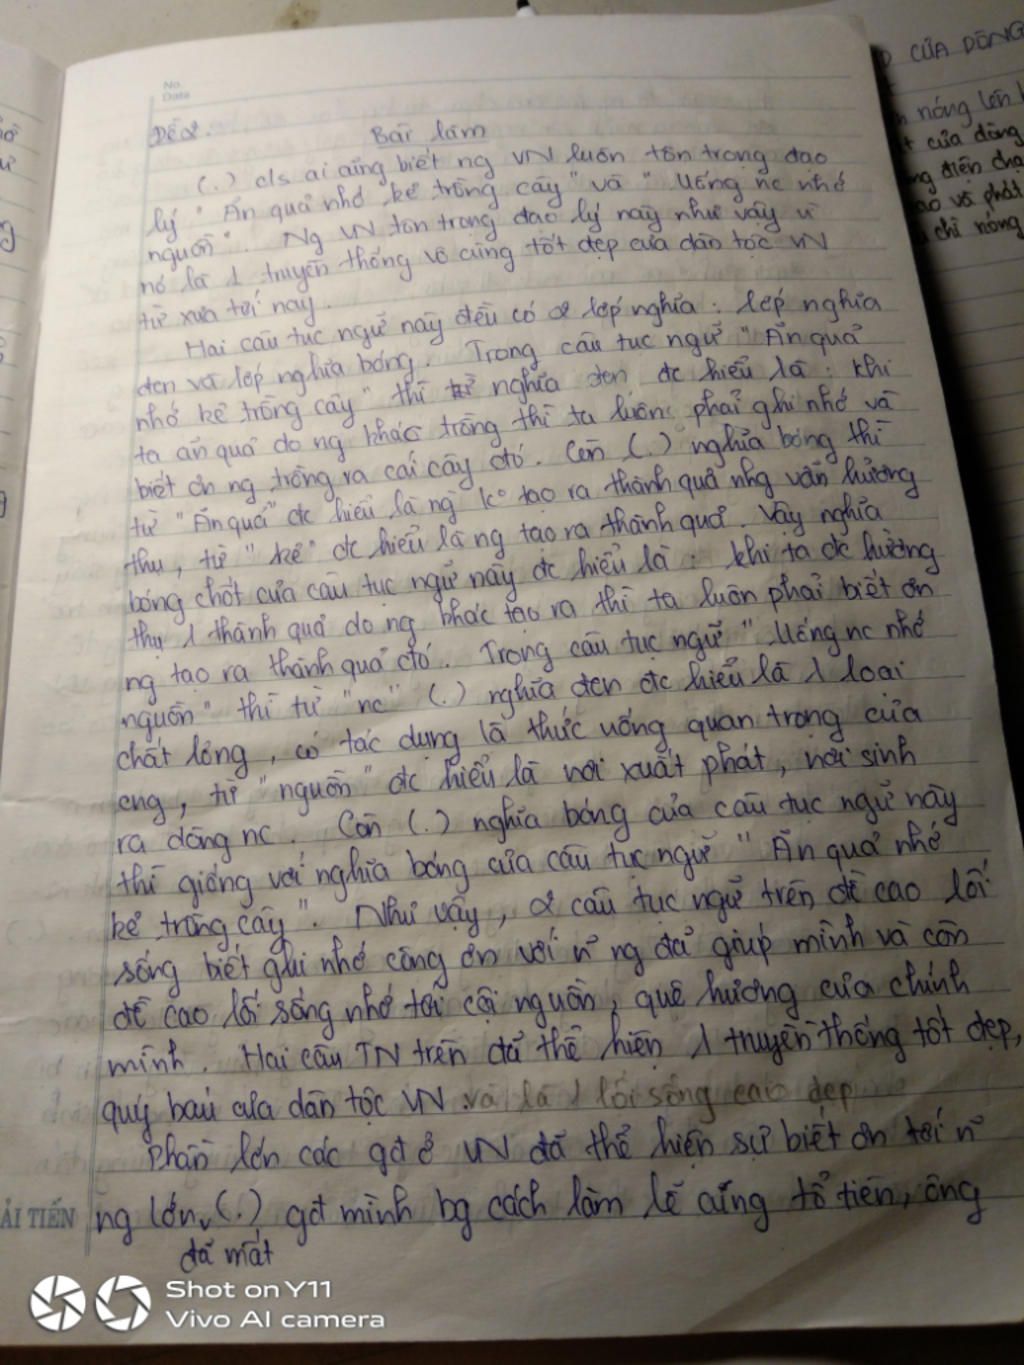 No.
Date
Đề 2. Bài làm
(.) c/s ai cũng biết ng VN luôn tôn trọng đạo
lý " Ăn quả nhớ kẻ trồng cây " và " Uống nc nhớ
nguồn ". Ng VN tôn trọng đạo lý này như vậy vì
nó là 1 truyền thống vô cùng tốt đẹp của dân tộc VN
từ xưa tới nay.
Hai câu tục ngữ này đều có 2 lớp nghĩa : lớp nghĩa
đen và lớp nghĩa bóng. Trong câu tục ngữ " Ăn quả
nhớ kẻ trồng cây " thì nghĩa đen đc hiểu là : khi
ta ăn quả do ng khác trồng thì ta luôn phải ghi nhớ và
biết ơn ng trồng ra cái cây đó. Còn (.) nghĩa bóng thì
từ " Ăn quả " đc hiểu là ng ko tạo ra thành quả nhg vẫn hưởng
thụ, từ " kẻ " đc hiểu là ng tạo ra thành quả. Vậy nghĩa
bóng chốt của câu tục ngữ này đc hiểu là : khi ta đc hưởng
thụ 1 thành quả do ng khác tạo ra thì ta luôn phải biết ơn
ng tạo ra thành quả đó. Trong câu tục ngữ " Uống nc nhớ
nguồn " thì từ " nc " (.) nghĩa đen đc hiểu là 1 loại
chất lỏng, có tác dụng là thức uống quan trọng của
cng, từ " nguồn " đc hiểu là nơi xuất phát, nơi sinh
ra dòng nc. Còn (.) nghĩa bóng của câu tục ngữ này
thì giống với nghĩa bóng của câu tục ngữ " Ăn quả nhớ
kẻ trồng cây ". Như vậy, 2 câu tục ngữ trên đề cao lối
sống biết ghi nhớ công ơn với n~ ng đã giúp mình và còn
đề cao lối sống nhớ tới cội nguồn, quê hương của chính
mình. Hai câu TN trên đã thể hiện 1 truyền thống tốt đẹp,
quý báu của dân tộc VN và là 1 lối sống cao đẹp
Phần lớn các gđ ở VN đã thể hiện sự biết ơn tới n~
ng lớn (.) gđ mình bg cách làm lễ cúng tổ tiên, ông
đã mất
ẢI TIẾN
CỦA DÒNG
nóng lên
của dòng
điện
và phát
chì nóng
Shot on Y11
Vivo AI camera